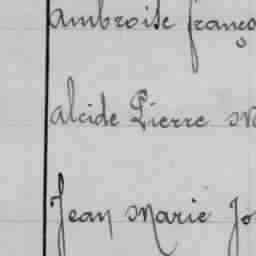 Ambroise franço
Alcide Pierre M
Jean Marie Jo